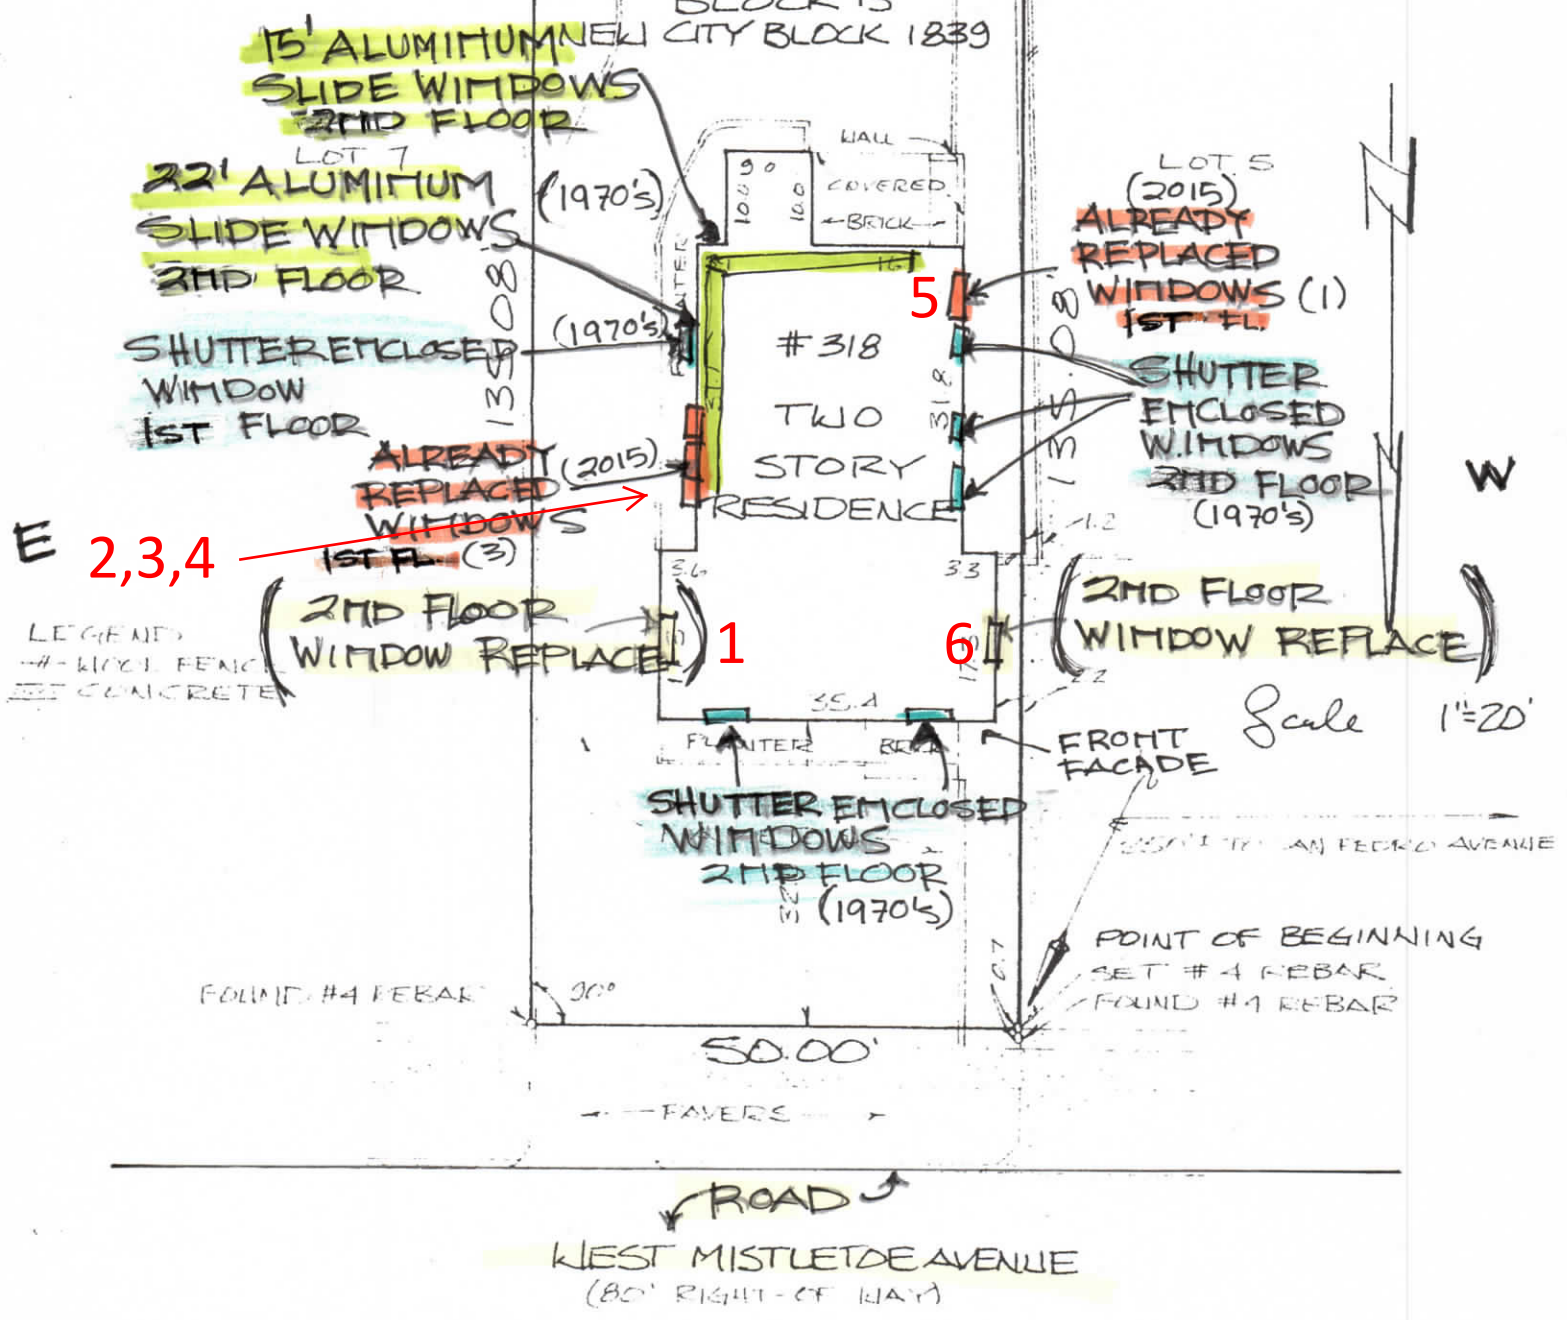 BLOCK 15
NEW CITY BLOCK 1839
15' ALUMINUM
SLIDE WINDOWS
2ND FLOOR
LOT 7
22' ALUMINUM
SLIDE WINDOWS
2ND FLOOR
(1970's)
SHUTTER ENCLOSED
WINDOW
1ST FLOOR
(1970's)
135.08'
ALREADY
REPLACED
WINDOWS
1ST FL. (3)
(2015)
E
2,3,4
2ND FLOOR
WINDOW REPLACE
1
LEGEND
CONCRETE
WALL
COVERED
BRICK
9.0
10.0
10.0
PLANTER
#318
TWO
STORY
RESIDENCE
31.8
5
LOT 5
(2015)
ALREADY
REPLACED
WINDOWS (1)
1ST FL.
135.08'
SHUTTER
ENCLOSED
WINDOWS
2ND FLOOR
(1970's)
W
1.2
3.6
3.3
6
2ND FLOOR
WINDOW REPLACE
2.2
35.4
Scale 1"=20'
PLANTER
BRICK
FRONT
FACADE
SHUTTER ENCLOSED
WINDOWS
2ND FLOOR
(1970's)
SAN PEDRO AVENUE
POINT OF BEGINNING
SET #4 REBAR
FOUND #4 REBAR
FOUND #4 REBAR
90°
0.7
50.00'
PAVERS
ROAD
WEST MISTLETOE AVENUE
(80' RIGHT-OF WAY)